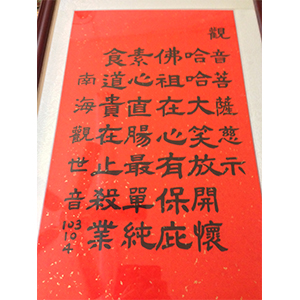 觀音菩薩慈示
哈哈大笑放開懷
佛祖在心有保庇
素心直腸最單純
食道貴在止殺業
南海觀世音
103
10
4